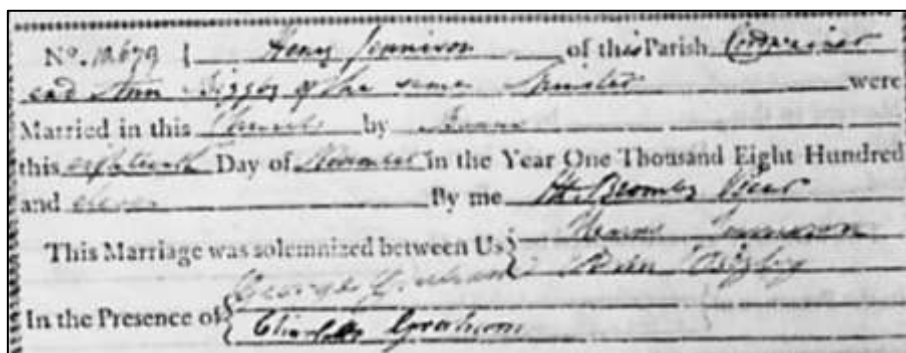 No. 10679 { Henry Jennison of this Parish Cordwainer
and Ann Bigby of the same Spinster were
Married in this Church by Banns
this eighteenth Day of November in the Year One Thousand Eight Hundred
and eleven By me Bromby Vicar
This Marriage was solemnized between Us { Jennison
Ann
In the Presence of { George Graham
Graham